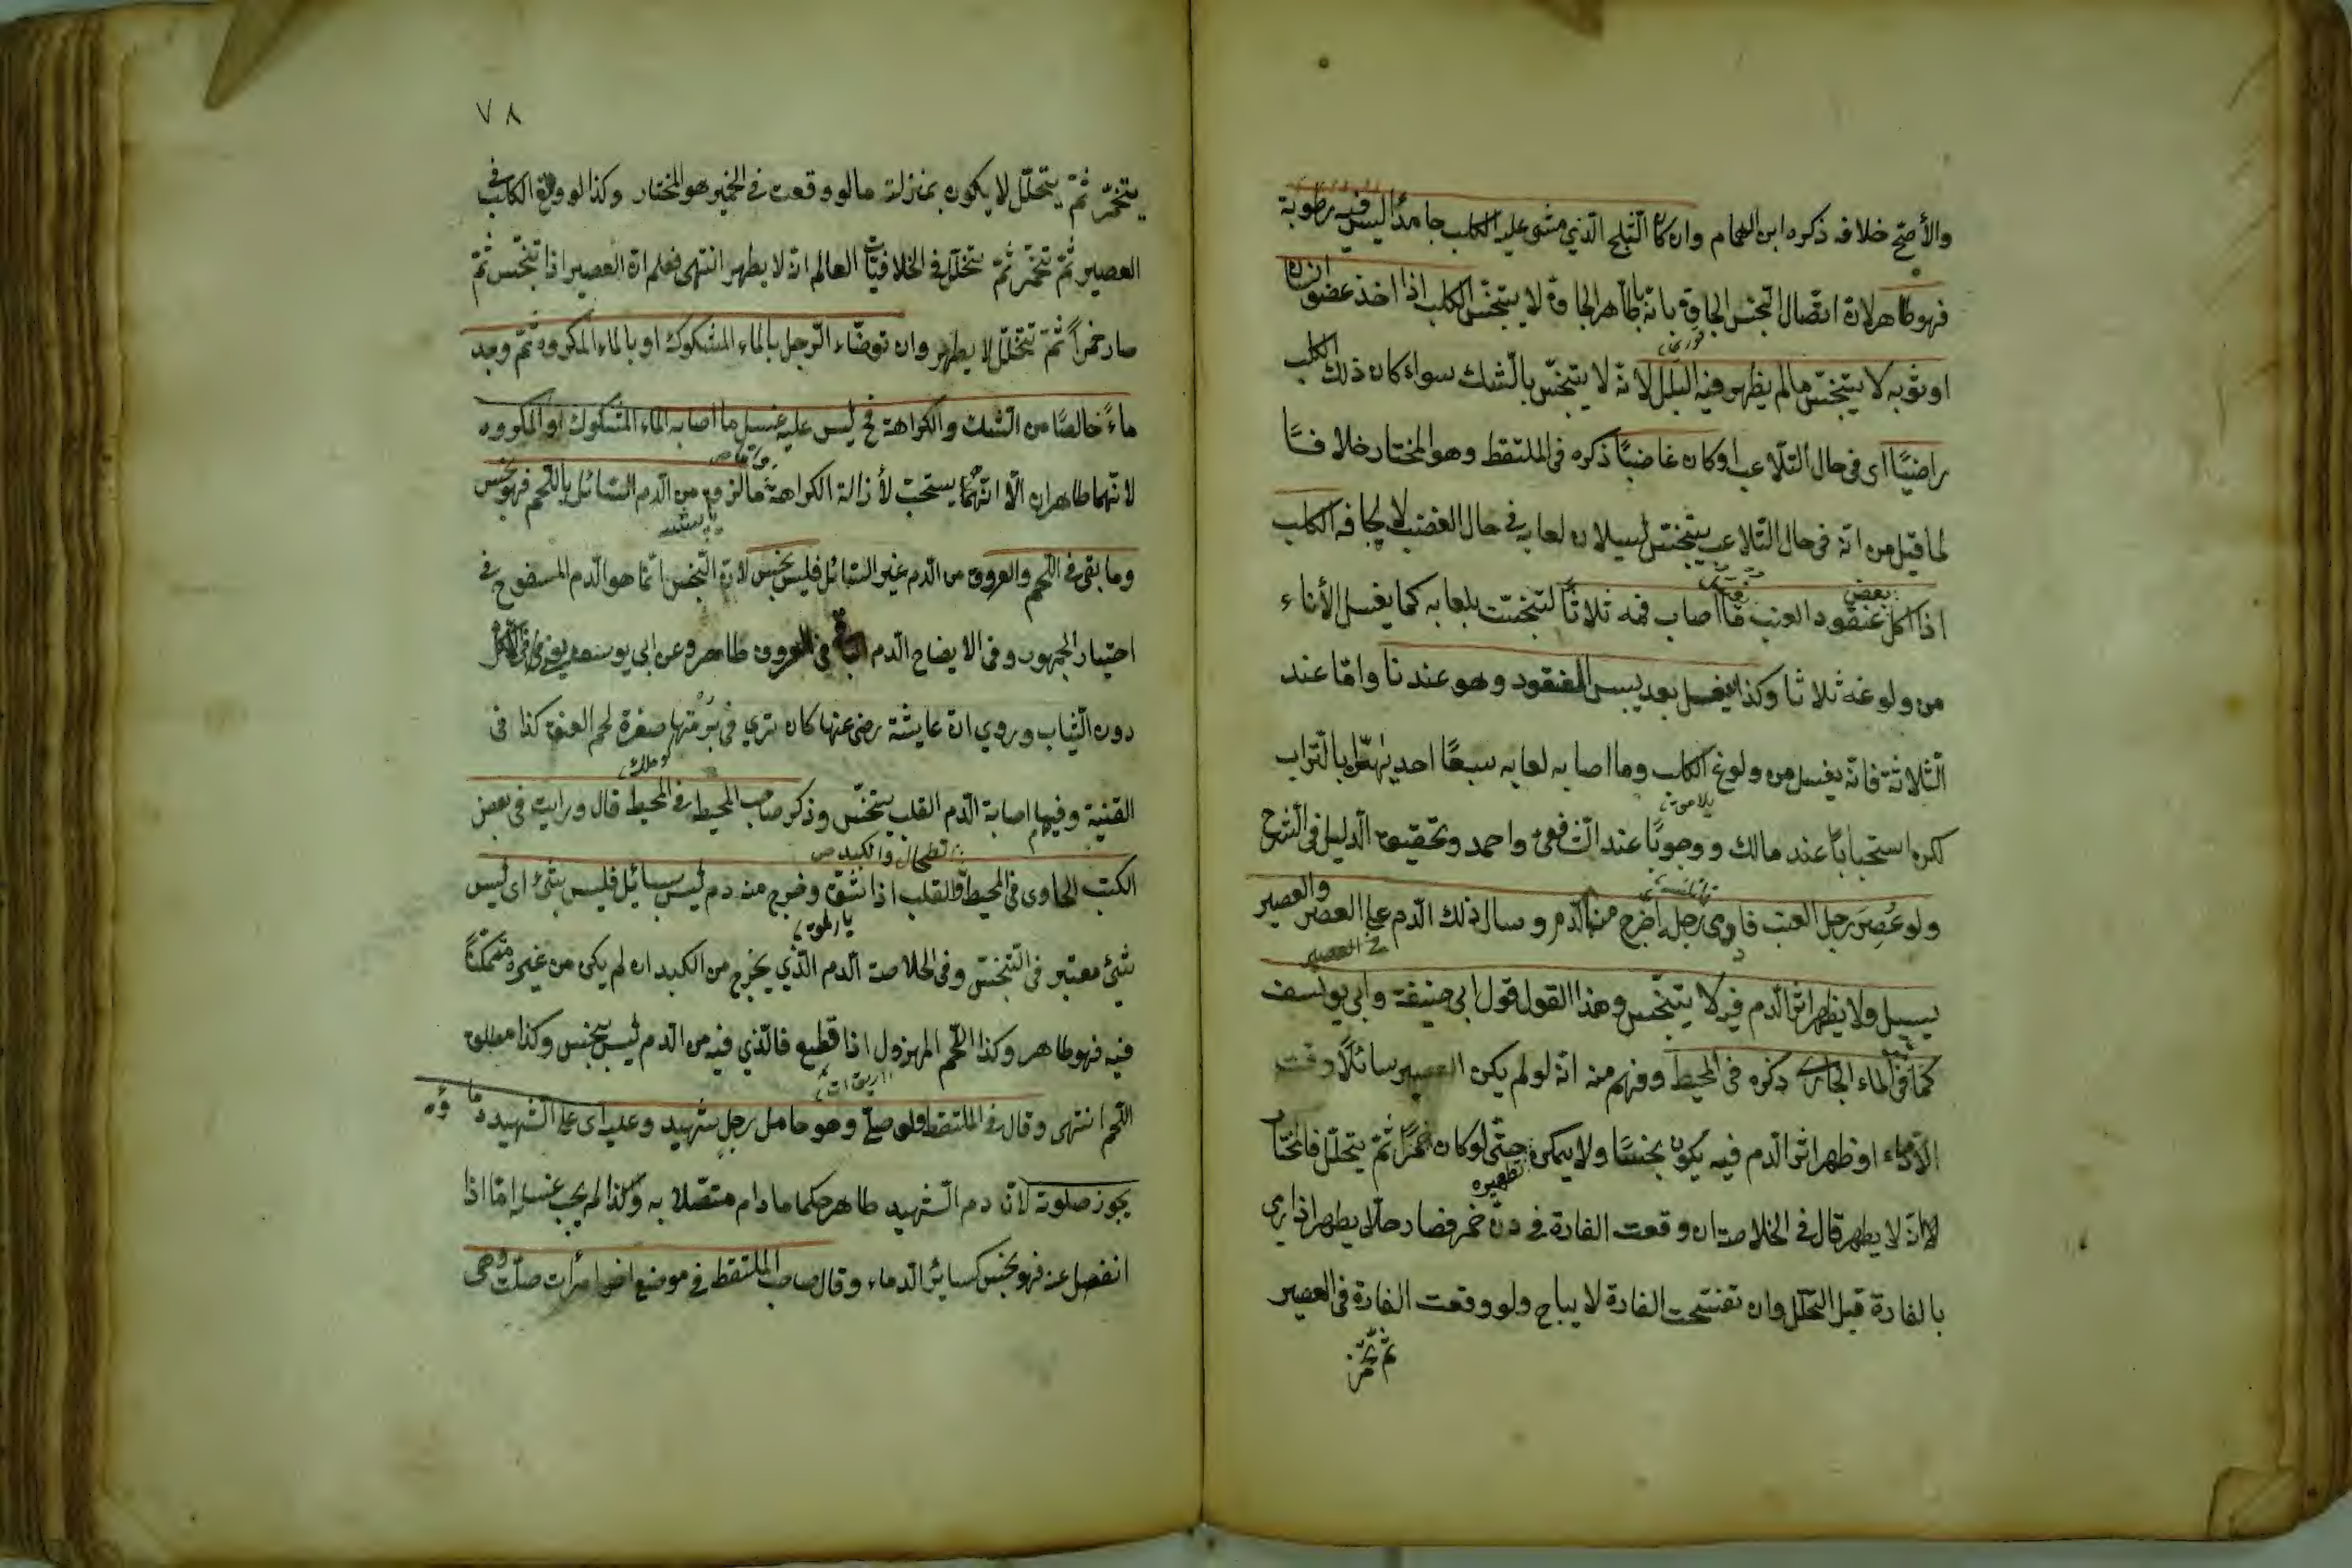 والأصح خلافه ذكره ابن الهمام وان كان الثلج الذي مشى عليه الكلب جامدا ليس فيه رطوبة
فهو طاهر لان اتصال النجس الجاف بانه بالطاهر الجاف لا ينجس الكلب اذا اخذ عضو انسان
او ثوبه لا يتنجس مالم يظهر فيه البلل لانه لا يتنجس بالشك سواء كان ذلك الكلب
راضيًا اى فى حال التلاعب او كان غاضبًا ذكره فى الملتقط وهو المختار خلافًا
لما قيل من انه فى حال التلاعب يتنجس لسيلان لعابه فى حال الغضب لا لجفافه الكلب
اذا اكل بعض عنقود العنب ما اصاب فمه ثلاثًا لتنجست بلعابه كما يغسل الأناء
من ولوغه ثلاثا وكذا يغسل بعد يبس العنقود وهو عندنا واما عند
الثلاثة فانه يغسل من ولوغ الكلب وما اصابه لعابه سبعًا احديهن بالتراب
لكن استحبابًا عند مالك ووجوبًا عند الشافعى واحمد وتحقيق الدليل فى الشرح
ولو عُصِرَ رجل العنب فادمى رجله اى خرج منه الدم وسال ذلك الدم على العصير والعصير
يسيل ولا يظهر اثر الدم فيه لا يتنجس وهذا القول قول ابى حنيفة وابى يوسف
كما فى الماء الجارى ذكره فى المحيط وفهم منه انه لو لم يكن العصير سائلًا وقت
الأدماء او ظهر اثر الدم فيه يكون نجسًا ولا يمكن تطهيره حتى لو كان خمرًا ثم يتخلل فالمختار
انه لا يطهر قال فى الخلاصة ان وقعت الفارة فى دن خمر فصار خلا يطهر اذا رمى
بالفارة قبل التخلل وان تفسخت الفارة لا يباح ولو وقعت الفارة فى العصير
ثم تخمر
٧٨
يتخمر ثم يتخلل لا يكون بمنزلة مالو وقعت فى الخمر هو المختار وكذا لو ولغ الكلب فى
العصير ثم تخمر ثم تخلل فى الخلافيات العالم انه لا يطهر انتهى فعلم ان العصير اذا تنجس ثم
صار خمرًا ثم تخلل لا يطهر وان توضاء الرجل بالماء المشكوك او بالماء المكروه ثم وجد
ماءً خالصًا من الشك والكراهة فح ليس عليه غسل ما اصابه الماء المشكوك او المكروه
لانهما طاهران الا انه يستحب لأزالة الكراهة ما لزق من الدم السائل باللحم فهو نجس
وما بقى فى اللحم والعروق من الدم غير السائل فليس بنجس لان النجس انما هو الدم المسفوح فى
اختيار الجمهور وفى الايضاح الدم الباقى فى العروق طاهر وعن ابى يوسف يعفى فى الأكل
دون الثياب وروى ان عايشة رضى عنها كان ترى فى برمتها صفرة لحم العنق كذا فى
القنية وفيها اصابة الدم القلب يتنجس وذكر صاحب المحيط فى المحيط قال ورايت فى بعض
الكتب الحاوى فى المحيط والقلب اذا شق وخرج منه دم ليس بسائل فليس بشئ اى ليس
بشئ معتبر فى التنجس وفى الخلاصة الدم الذي يخرج من الكبد ان لم يكن من غيره متمكنًا
فيه فهو طاهر وكذا اللحم المهزول اذا قطع فالذي فيه من الدم ليس بنجس وكذا مطلق
اللحم انتهى وقال فى الملتقط ولو صلى وهو حامل رجل شهيد وعليه اى على الشهيد دماؤه
يجوز صلوته لان دم الشهيد طاهر حكما مادام متصلا به ولذا لم يجب غسله اما اذا
انفصل عنه فهو نجس كسائر الدماء وقال صاحب الملتقط فى موضع اخر امرأت صلت وهى